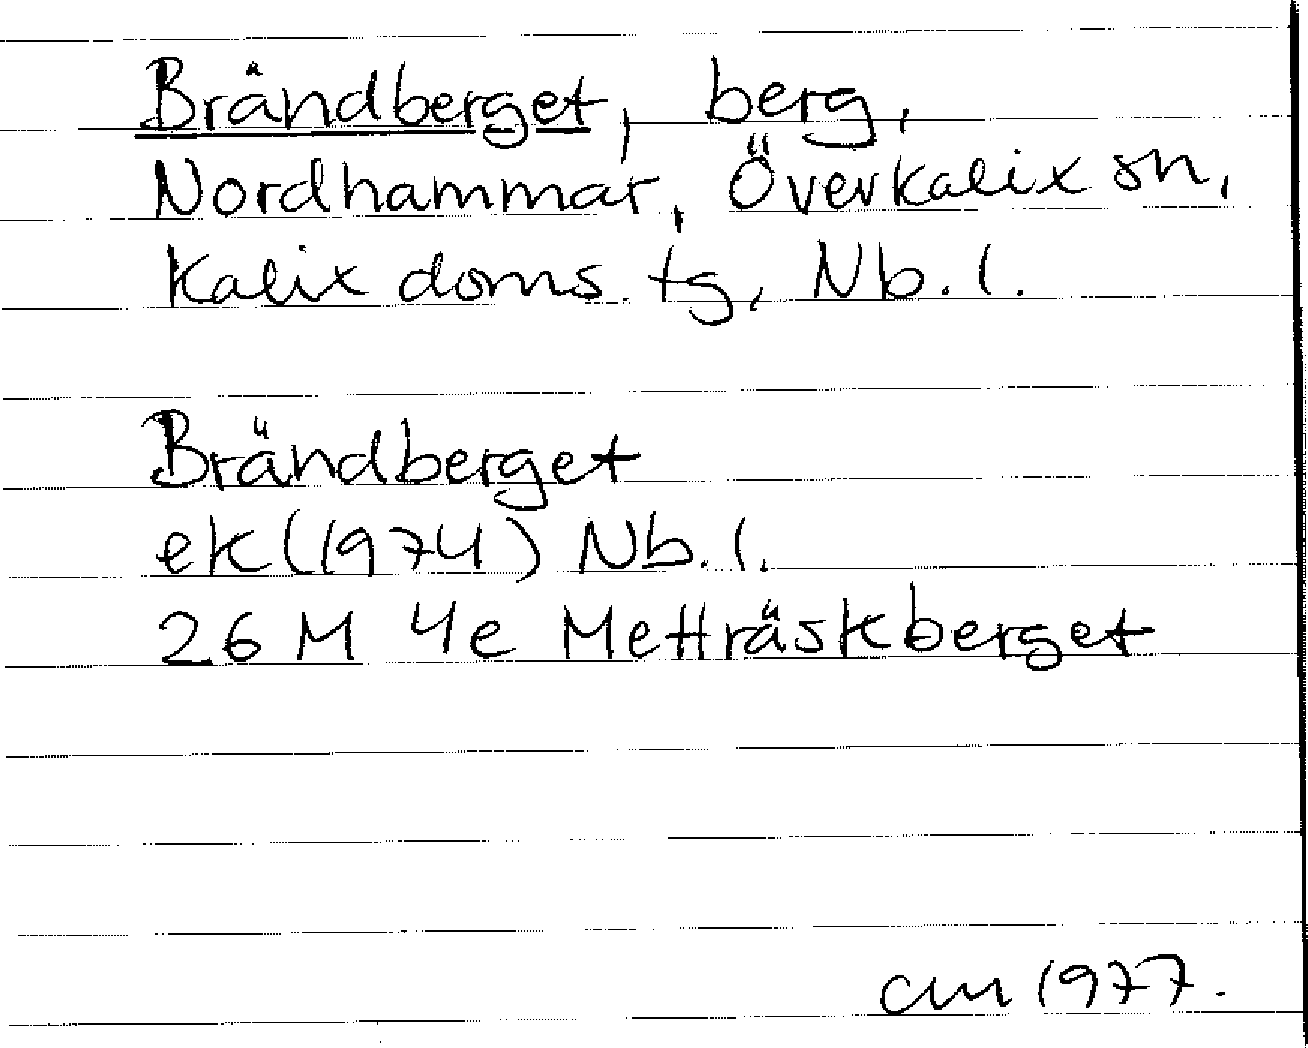 Brändberget, berg,
Nordhammar, Överkalix sn,
Kalix doms. tg, Nb. l.
Brändberget
ek (1974) Nb. l.
26 M 4e Metträskberget
cm 1977.